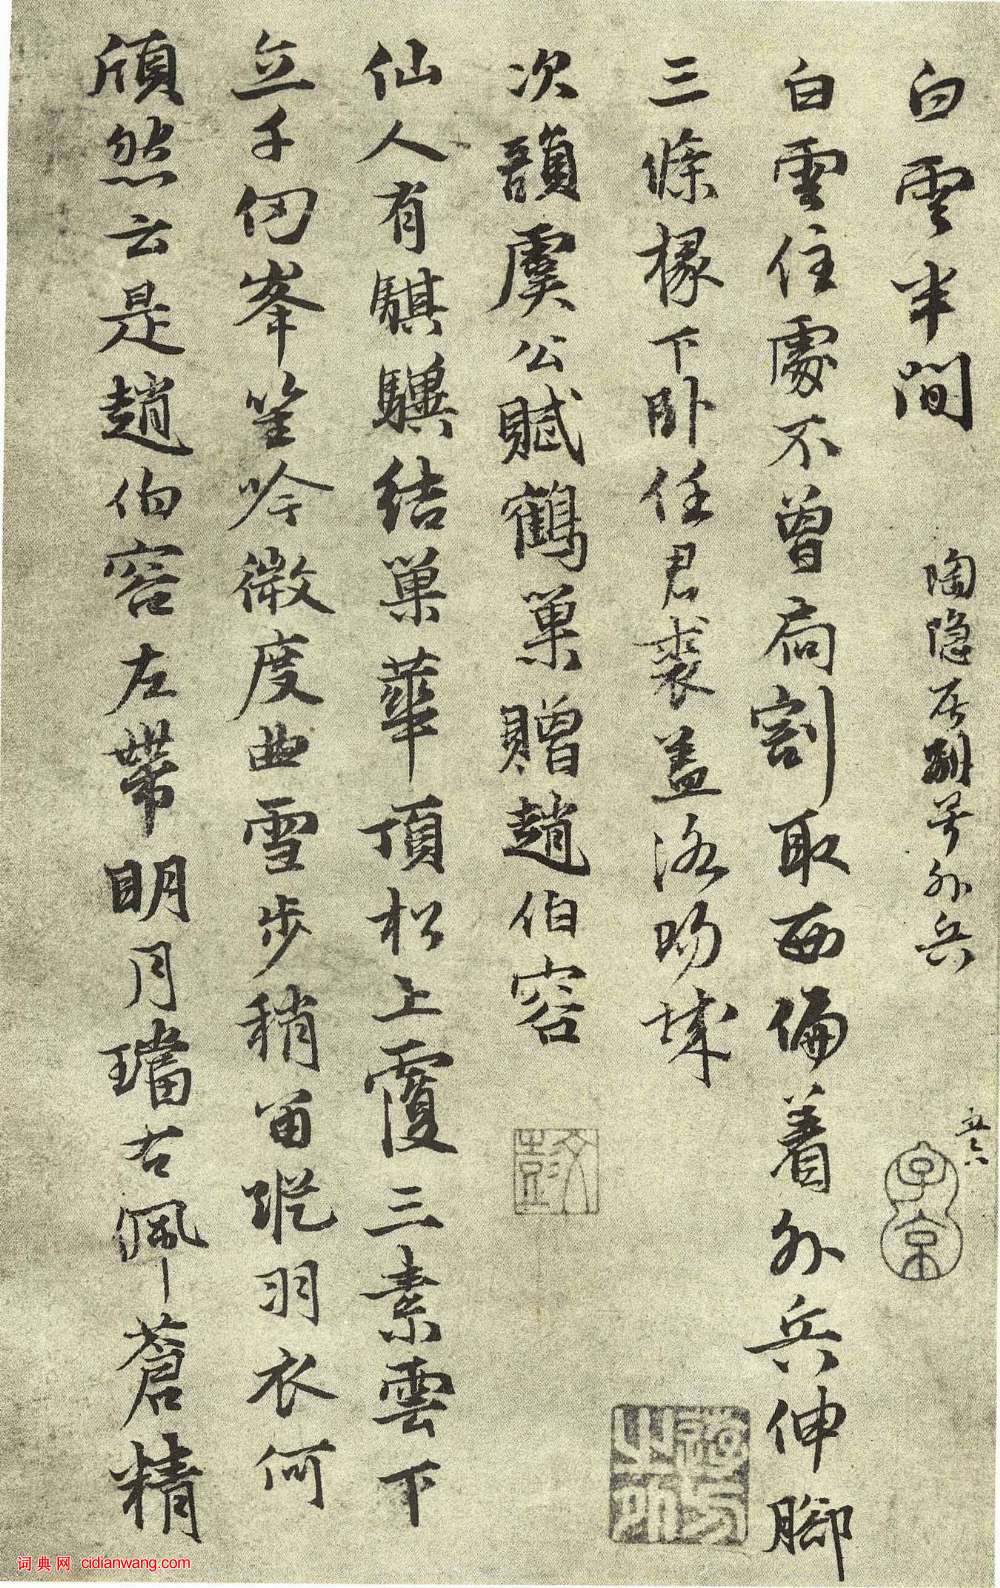 白雲半間
陶隱居別号外兵
五六
白雲住處不曾扃割取西偏着外兵伸脚
三條椽下卧任君裘盖洛陽城
次韻虞公賦鶴巢贈趙伯容
仙人有騏驥結巢華頂松上覆三素雲下
立千仞峯笙吟微度曲雪步稍留蹤羽衣何
頎然云是趙伯容左帶明月璫右佩蒼精
子京
词典网 cidianwang.com